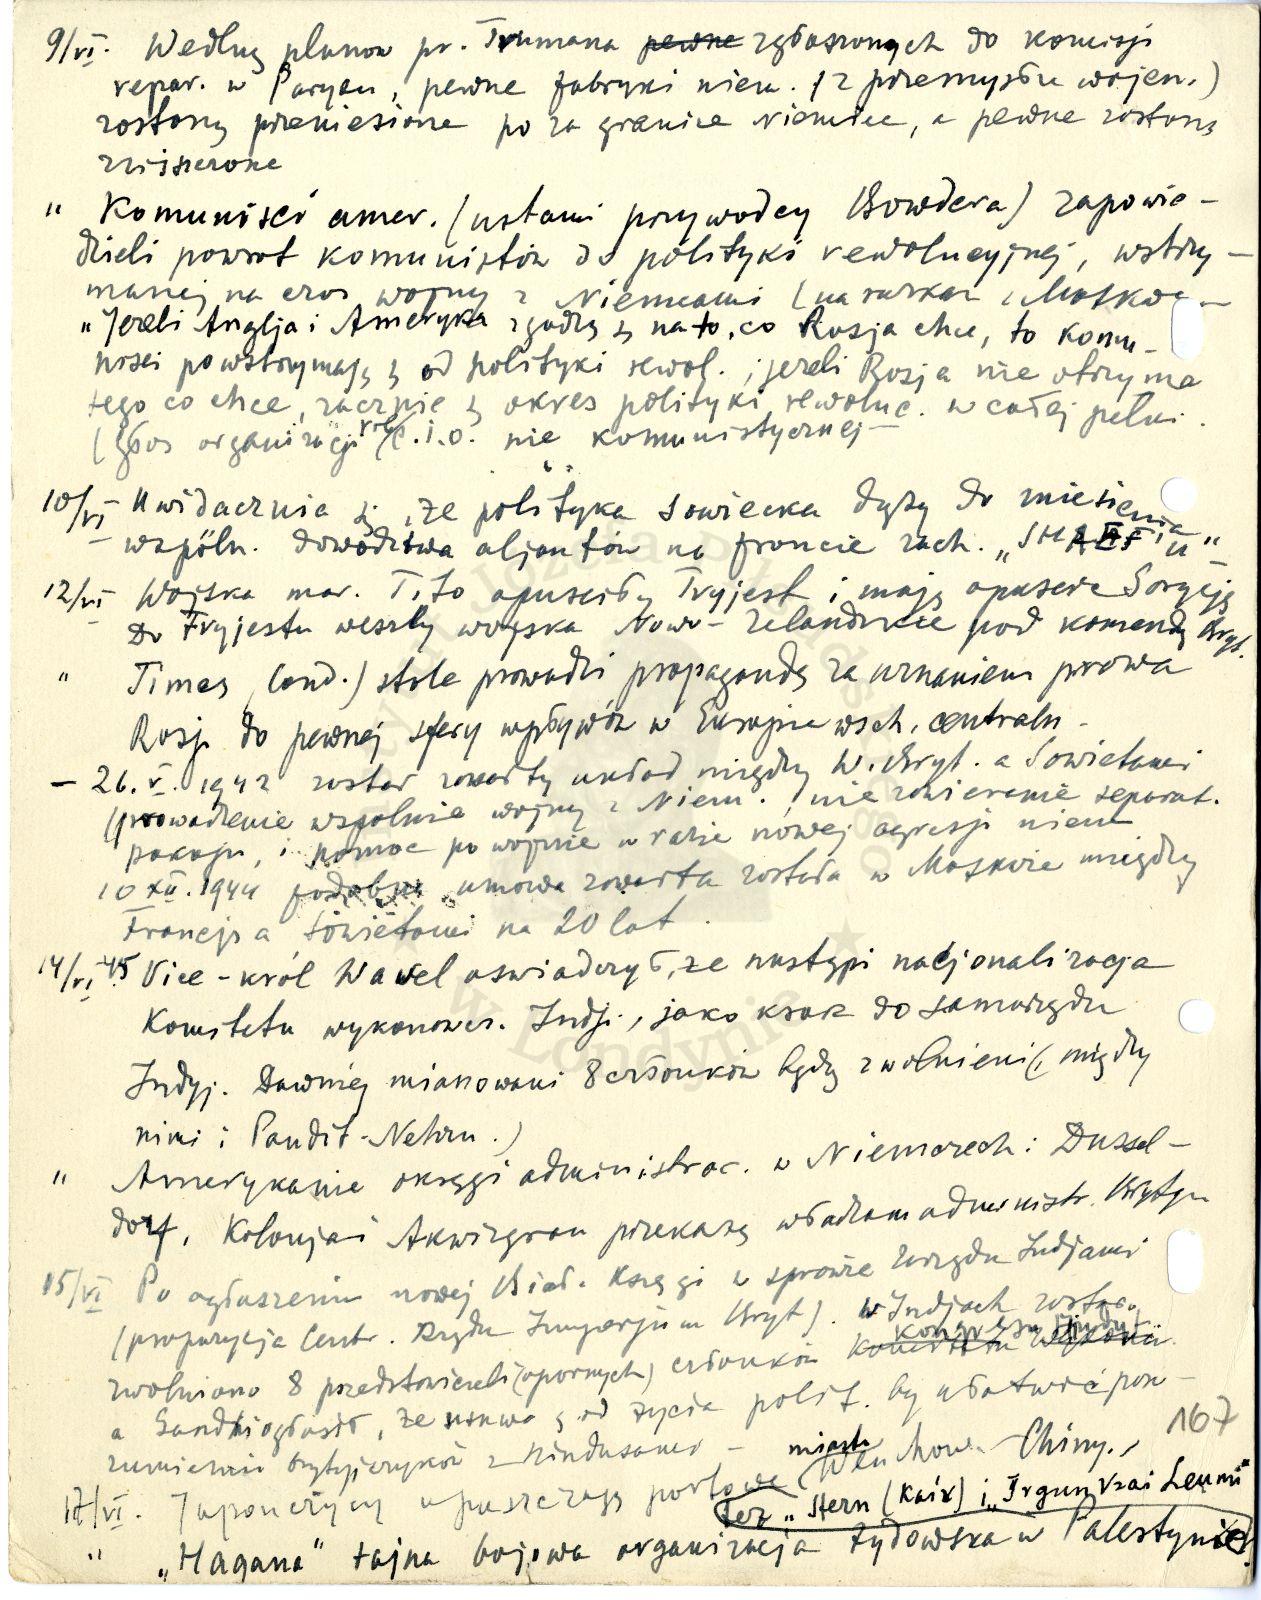 9/VI. Według planów pr. Trumana pewne zgłoszonych do komisji
repar. w Paryżu, pewne fabryki niem. (z przemysłu wojen.)
zostaną przeniesione po za granice Niemiec, a pewne zostaną
zniszczone
" Komuniści amer. (ustami przywódcy Bowdera) zapowie-
dzieli powrót komunistów do polityki rewolucyjnej, wstrzy-
manej na czas wojny z Niemcami (na rozkaz Moskwy -
"Jeżeli Anglja i Ameryka zgodzą się na to, co Rosja chce, to komu-
niści powstrzymają się od polityki rewol.; jeżeli Rosja nie otrzyma
tego co chce, zacznie się okres polityki rewoluc. w całej pełni.
(głos organizacji rob. C.I.O. nie komunistycznej -
10/VI - Uwidacznia się, że polityka sowiecka dąży do zniesienia
wspóln. dowództwa aljantów na froncie zach. "SHAEF'u"
12/VI Wojska mar. Tito opuściły Tryjest i mają opuścić Gorycję
Do Tryjestu weszły wojska Nowo-Zelandzkie pod komendą Bryt.
" Times (Lond.) stale prowadzi propagandę za uznaniem prawa
Rosji do pewnej sfery wpływów w Europie wsch. centraln -
- 26.V.1942 został zawarty układ między W. Bryt. a Sowietami
(prowadzenie wspólnie wojny z Niem., nie zawieranie separat.
pokoju, i pomoc po wojnie w razie nowej agresji niem
10 XII.1944 podobna umowa zawarta została w Moskwie między
Francją a Sowietami na 20 lat.
14/VI 45 Vice-król Wavel oświadczył, że nastąpi nacjonalizacja
Komitetu wykonawcz. Indji, jako krok do samorządu
Indyj. Dawniej mianowani 8 członków będą zwolnieni (między
nimi i Pandit-Nehru.)
" Amerykanie okręgi administrac. w Niemczech: Dussel-
dorf, Kolonja i Akwizgran przekażą władzom administr. Brytyj
15/VI Po ogłoszeniu nowej Biał. Księgi w sprawie zarządu Indjami
(propozycja Centr. Rządu Imperjum Bryt). w Indjach zostac.
kongresu Hindus.
zwolniono 8 przedstawicieli (opornych) członków Komitetu Wykona
a Gandhi ogłosił, że usuwa się od życia polit. by ułatwić poro-
zumienie brytyjczyków z hindusami - 167
miasto
17/VI. Japończycy opuszczają portowe Wenchow - Chiny.,
też "Stern (Kair) i "Irgun Vzai Leumi"
" "Hagana" tajna bojowa organizacja żydowska w Palestynie
Józefa Piłsudskiego
w Londynie